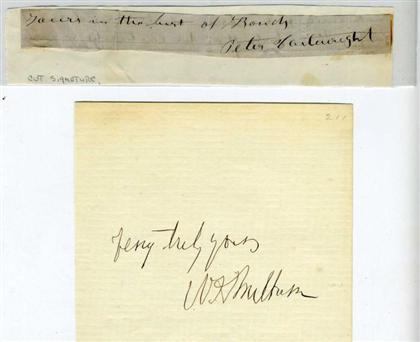 Yours in the best of Bonds
Peter Cartwright
CUT SIGNATURE.
211
very truly yours